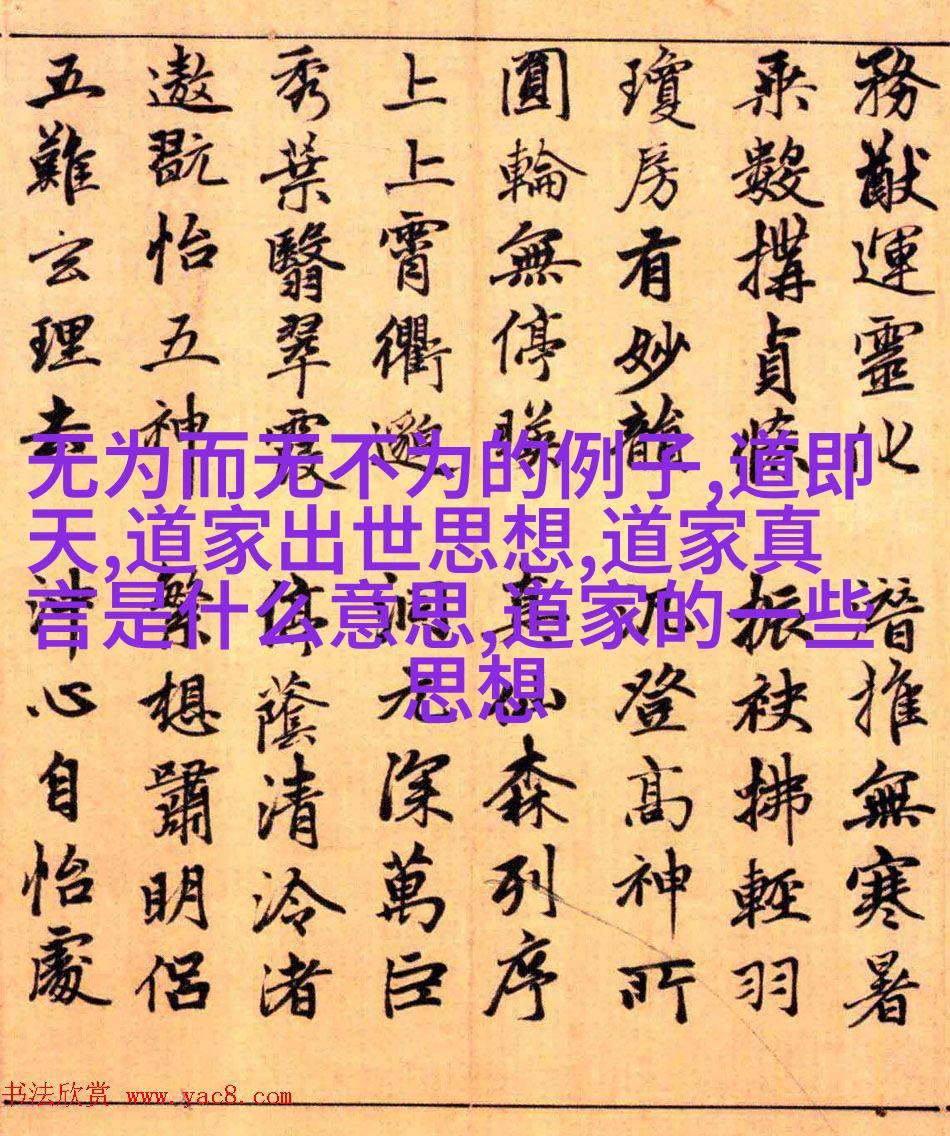 務猷運靈化 潛推無寒暑
乘數搆貞條 振袂拂輕羽
瓊房有妙韻 汎登高神所
圓輪無停暎 真仙森列序
上上霄衢邈 洞元深萬巨
秀葉翳翠霞 停蔭清泠渚
遨翫怡五神 繁想嘯明侶
五難玄理去 沖心自怡處
无为而无不为的例子,道即
天,道家出世思想,道家真
言是什么意思,道家的一些
思想
书法欣赏 www.yac8.com